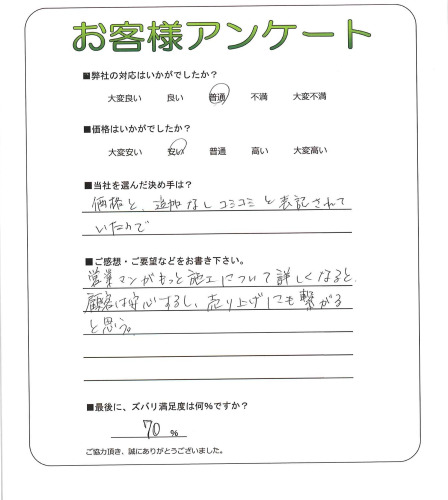 お客様アンケート
■弊社の対応はいかがでしたか？
大変良い 良い 普通 不満 大変不満
■価格はいかがでしたか？
大変安い 安い 普通 高い 大変高い
■当社を選んだ決め手は？
価格と、追加なしコミコミと表記されて
いたので
■ご感想・ご要望などをお書き下さい。
営業マンがもっと施工について詳しくなると、
顧客は安心するし、売り上げにも繋がる
と思う。
■最後に、ズバリ満足度は何％ですか？
70 %
ご協力頂き、誠にありがとうございました。